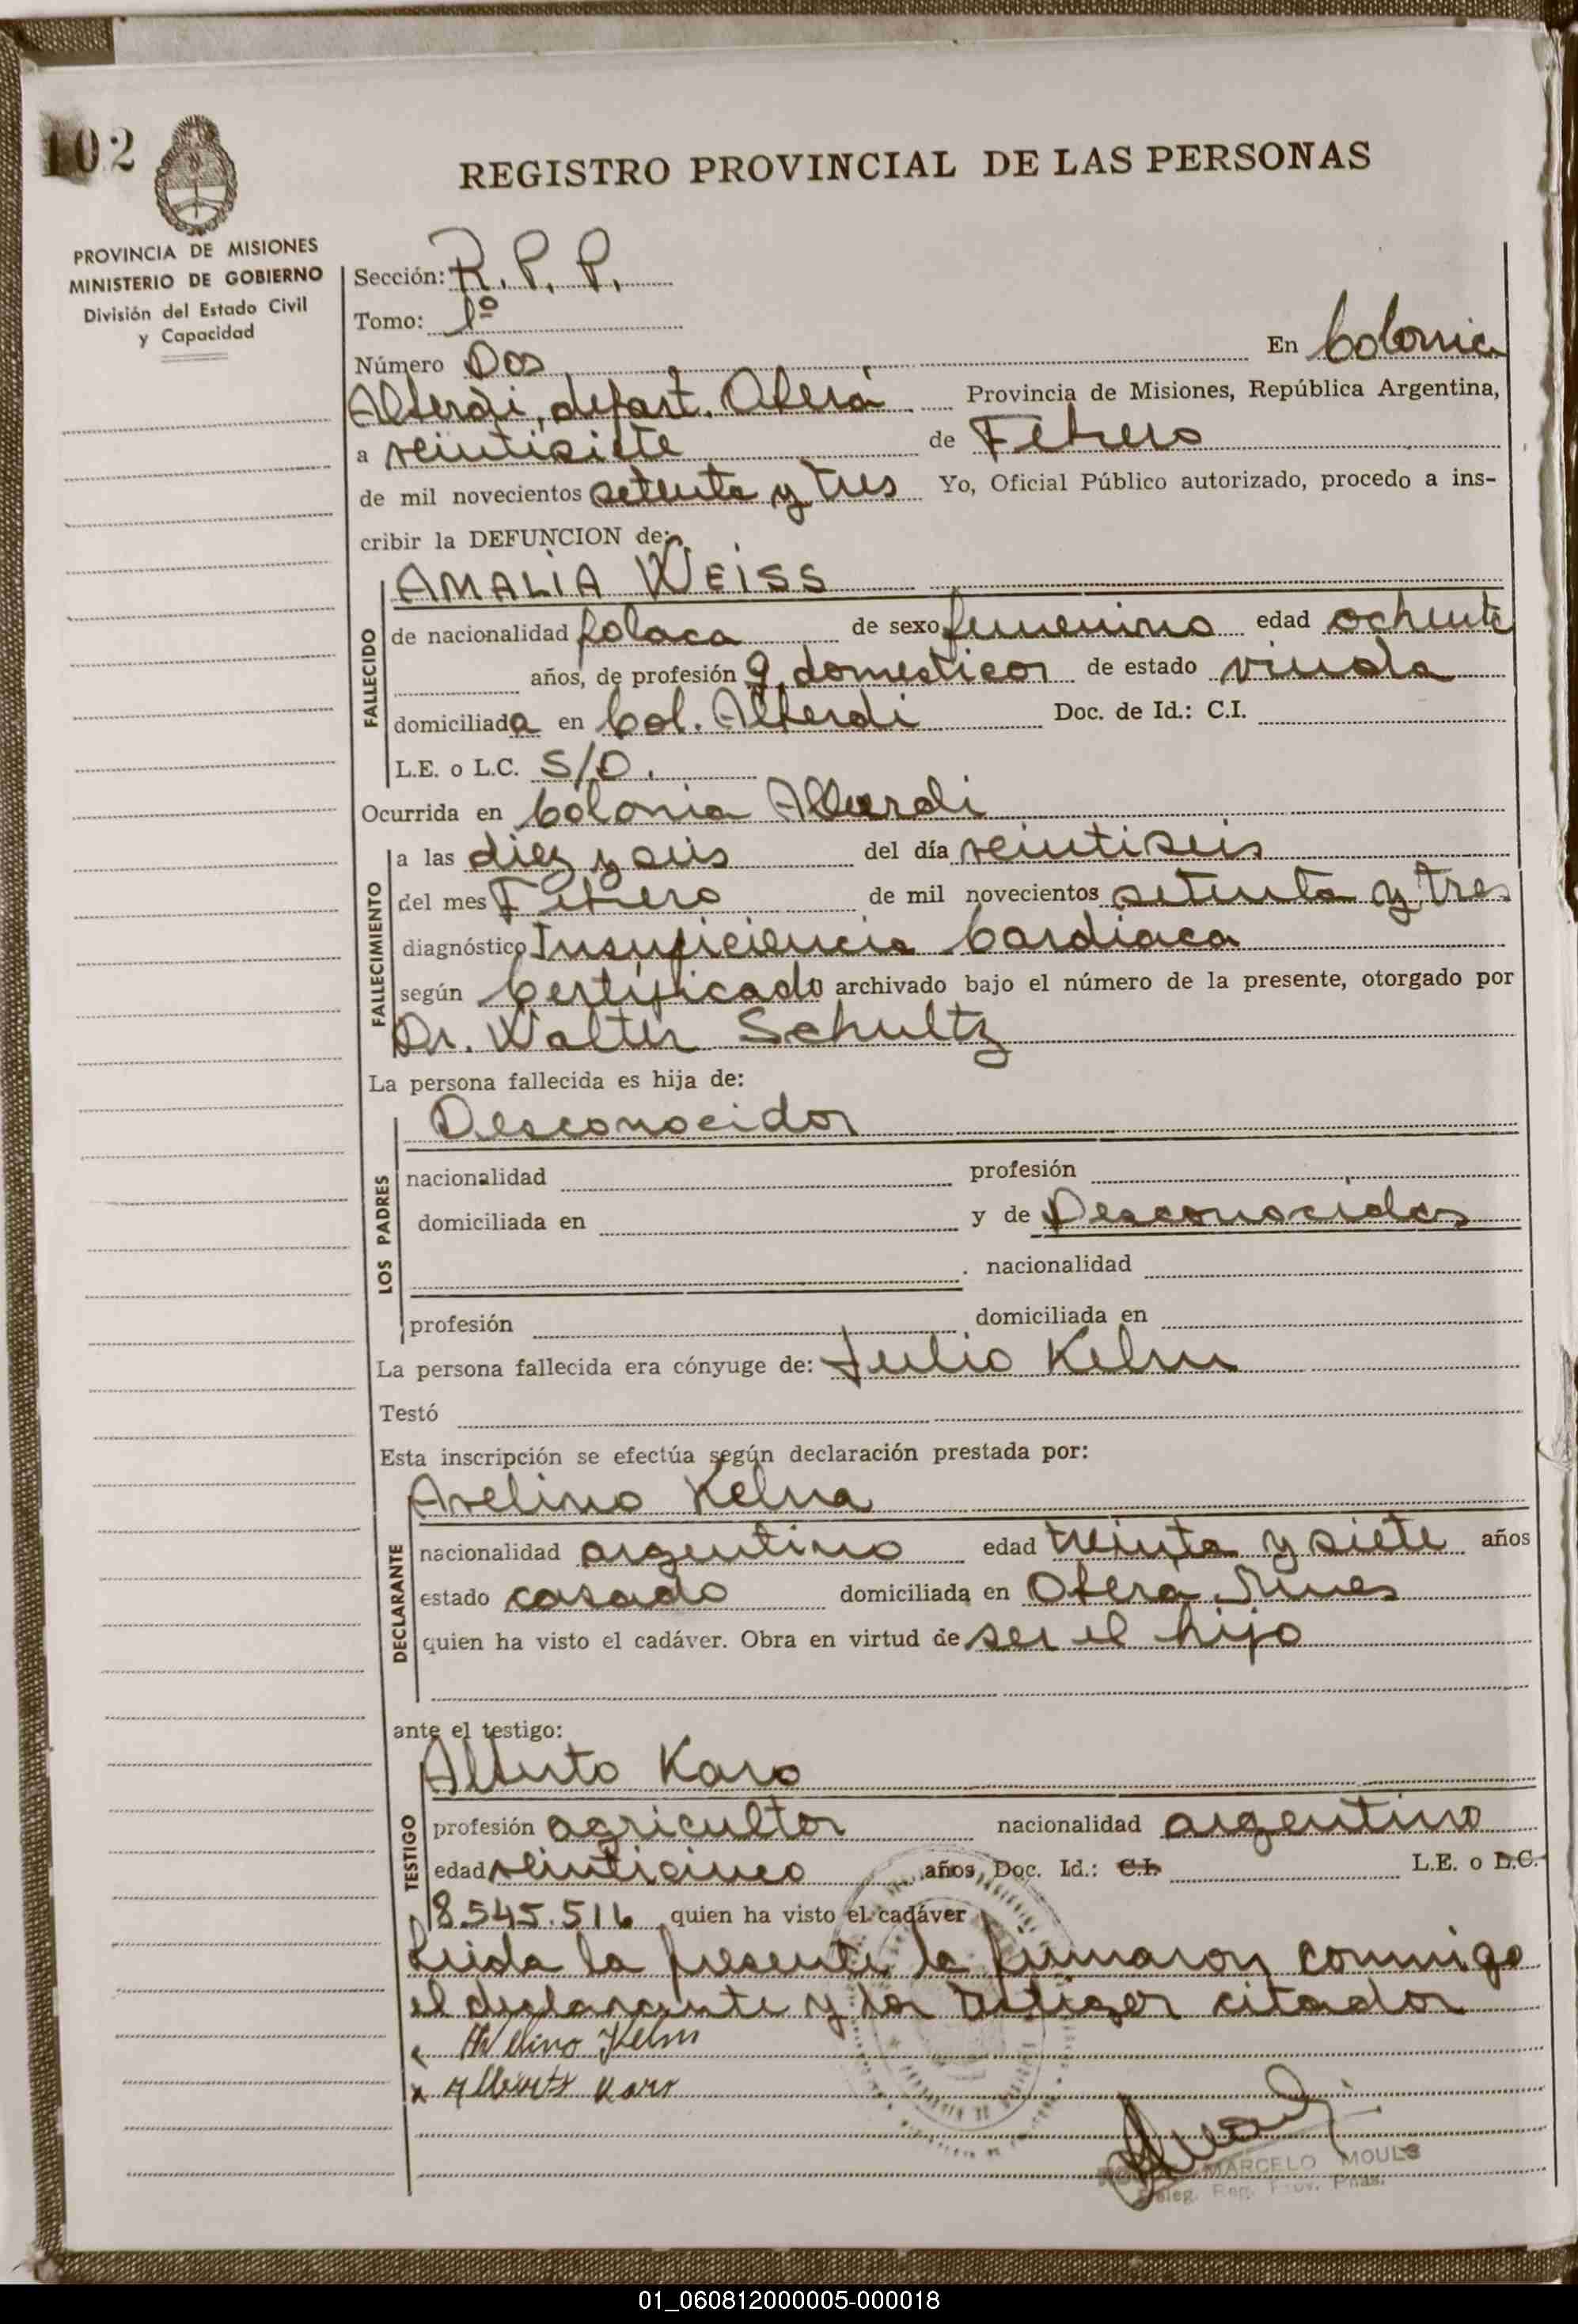 102
REGISTRO PROVINCIAL DE LAS PERSONAS
PROVINCIA DE MISIONES
MINISTERIO DE GOBIERNO
División del Estado Civil
y Capacidad
Sección: R. P. P.
Tomo: 1º
Número Dos En Colonia
Alberdi, depart. Oberá Provincia de Misiones, República Argentina,
a veintisiete de Febrero
de mil novecientos setenta y tres Yo, Oficial Público autorizado, procedo a ins-
cribir la DEFUNCION de:
AMALIA WEISS
FALLECIDO
de nacionalidad polaca de sexo femenino edad ochenta
años, de profesión q. domesticos de estado viuda
domiciliada en Col. Alberdi Doc. de Id.: C.I.
L.E. o L.C. S/D.
Ocurrida en Colonia Alberdi
FALLECIMIENTO
a las diez y seis del día veintiseis
del mes Febrero de mil novecientos setenta y tres
diagnóstico Insuficiencia Cardiaca
según Certificado archivado bajo el número de la presente, otorgado por
Dr. Walter Schultz
La persona fallecida es hija de:
LOS PADRES
Desconocidos
nacionalidad profesión
domiciliada en y de Desconocidos
nacionalidad
profesión domiciliada en
La persona fallecida era cónyuge de: Julio Kelm
Testó
Esta inscripción se efectúa según declaración prestada por:
DECLARANTE
Avelino Kelm
nacionalidad argentino edad treinta y siete años
estado casado domiciliada en Oberá Mnes
quien ha visto el cadáver. Obra en virtud de ser el hijo
ante el testigo:
TESTIGO
Alberto Karo
profesión agricultor nacionalidad argentino
edad veinticinco años, Doc. Id.: C.I. L.E. o L.C.
8.545.516 quien ha visto el cadáver
Leida la presente, la firmaron conmigo
el declarante y los testigos citados
Avelino Kelm
x Alberto Karo
MARCELO MOULS
Deleg. Reg. Prov. Pnas.
01_060812000005-000018